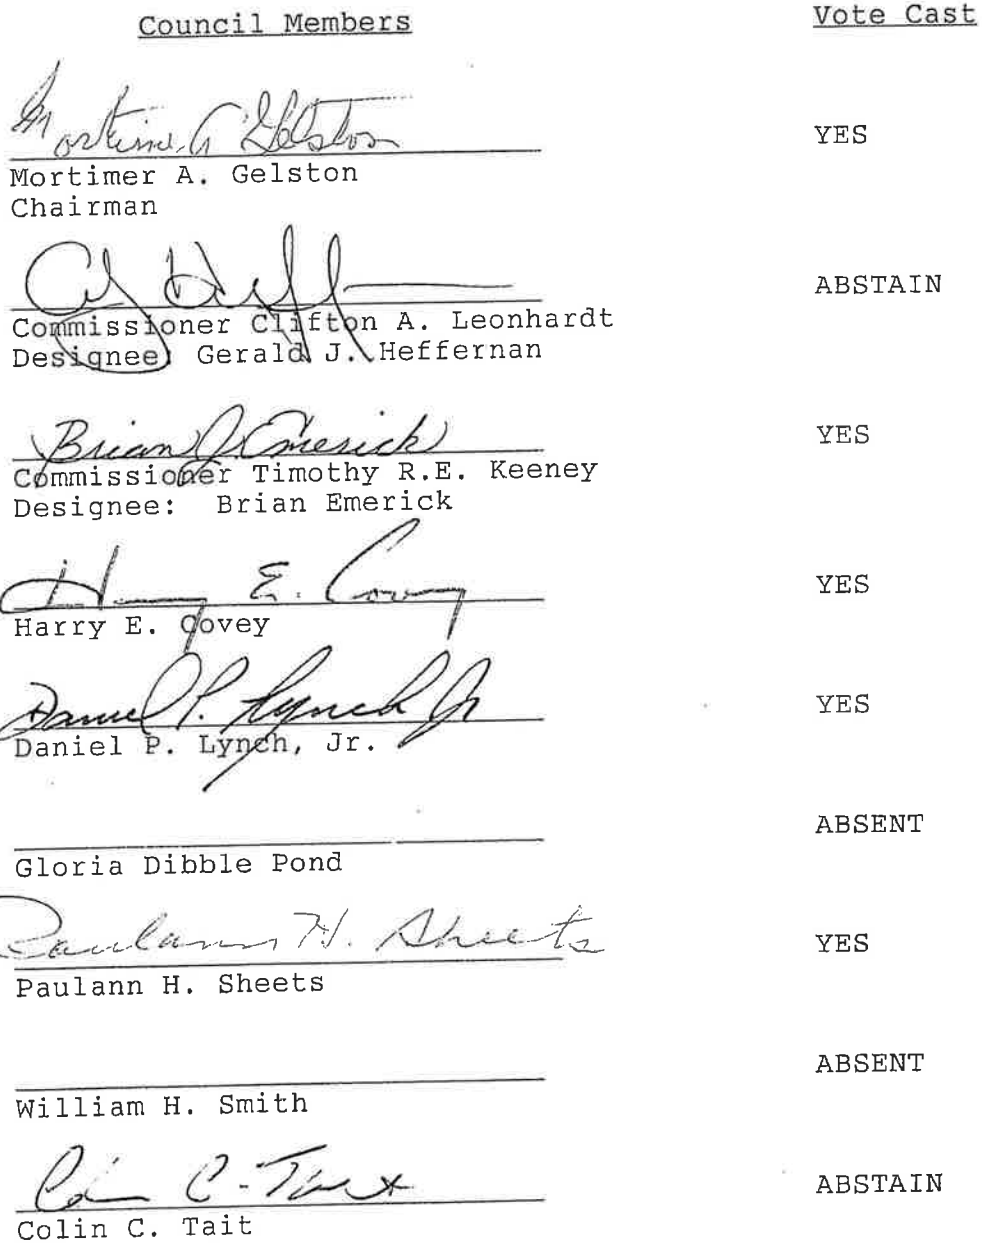 Council Members Vote Cast
Mortimer A Gelston YES
Mortimer A. Gelston
Chairman
ABSTAIN
Commissioner Clifton A. Leonhardt
Designee: Gerald J. Heffernan
Brian J. Emerick YES
Commissioner Timothy R.E. Keeney
Designee: Brian Emerick
Harry E. Covey YES
Harry E. Covey
Daniel P. Lynch Jr YES
Daniel P. Lynch, Jr.
ABSENT
Gloria Dibble Pond
Paulann H. Sheets YES
Paulann H. Sheets
ABSENT
William H. Smith
Colin C. Tait ABSTAIN
Colin C. Tait